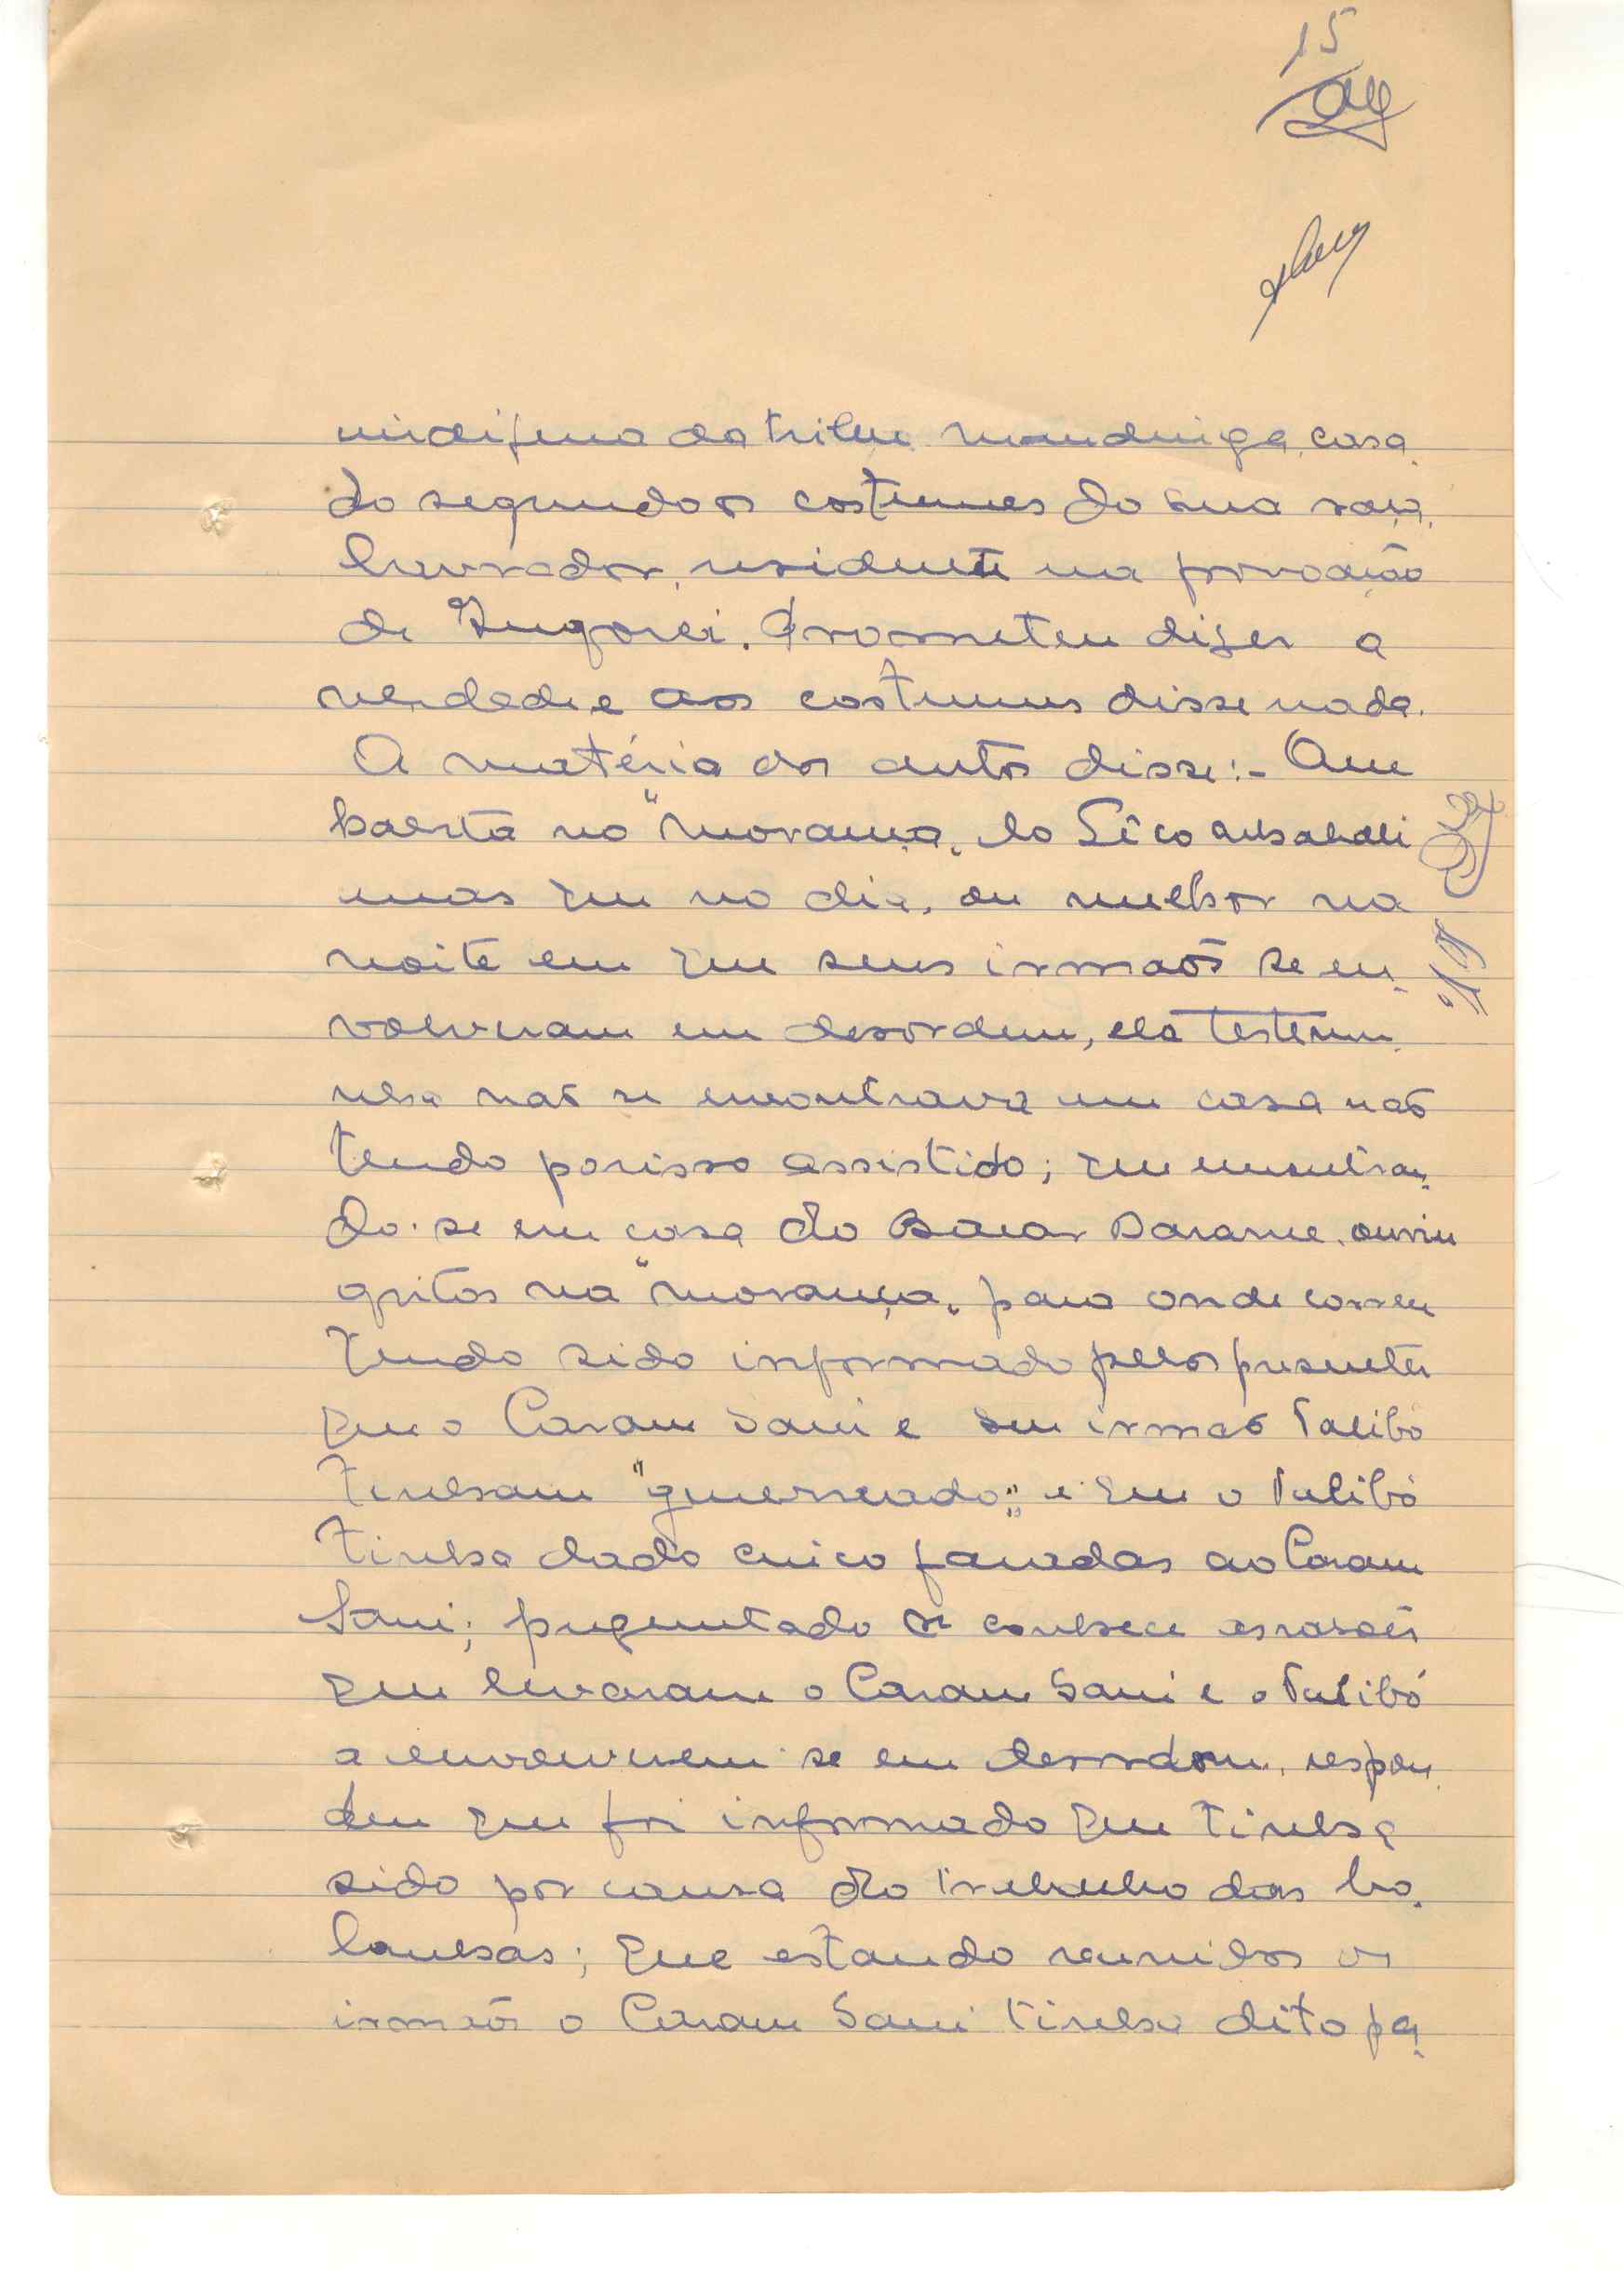 15
indijena da tribu mandinga, casa
do segundo os costumes da sua raça,
lavrador, residente na povoação
de . Prometeu dizer a
verdade e aos costumes disse nada.
A matéria dos autos disse:- Que
habita na "morança" do Sico
mas que no dia, ou melhor na
noite em que seus irmãos se en-
volveram em desordem, ela testemu-
nha não se encontrava em casa não
tendo porisso assistido; que encontran-
do-se em casa do Darame, ouviu
gritos na "morança" para onde correu
tendo sido informado pelos presentes
que o Caram Sani e seu irmão Talibó
tinham "guerreado" e que o Talibó
tinha dado cinco facadas ao Caram
Sani; preguntado se conhece as rasões
que levaram o Caram Sani e o Talibó
a envolverem-se em desordem, respon-
deu que foi informado que tinha
sido por causa do trabalho das bo-
lanhas; que estando reunidos os
irmãos o Caram Sani tinha dito pa-